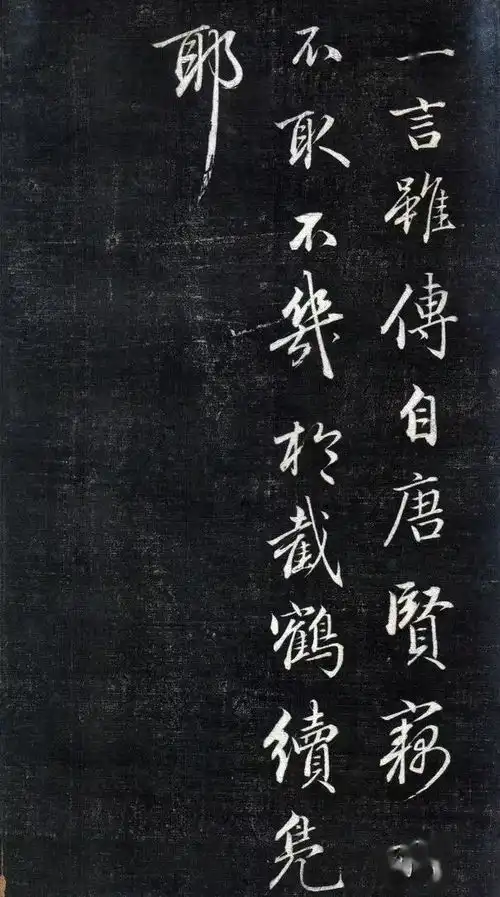 一言雖傳自唐賢竊
不取不幾於截鶴續鳧
耶